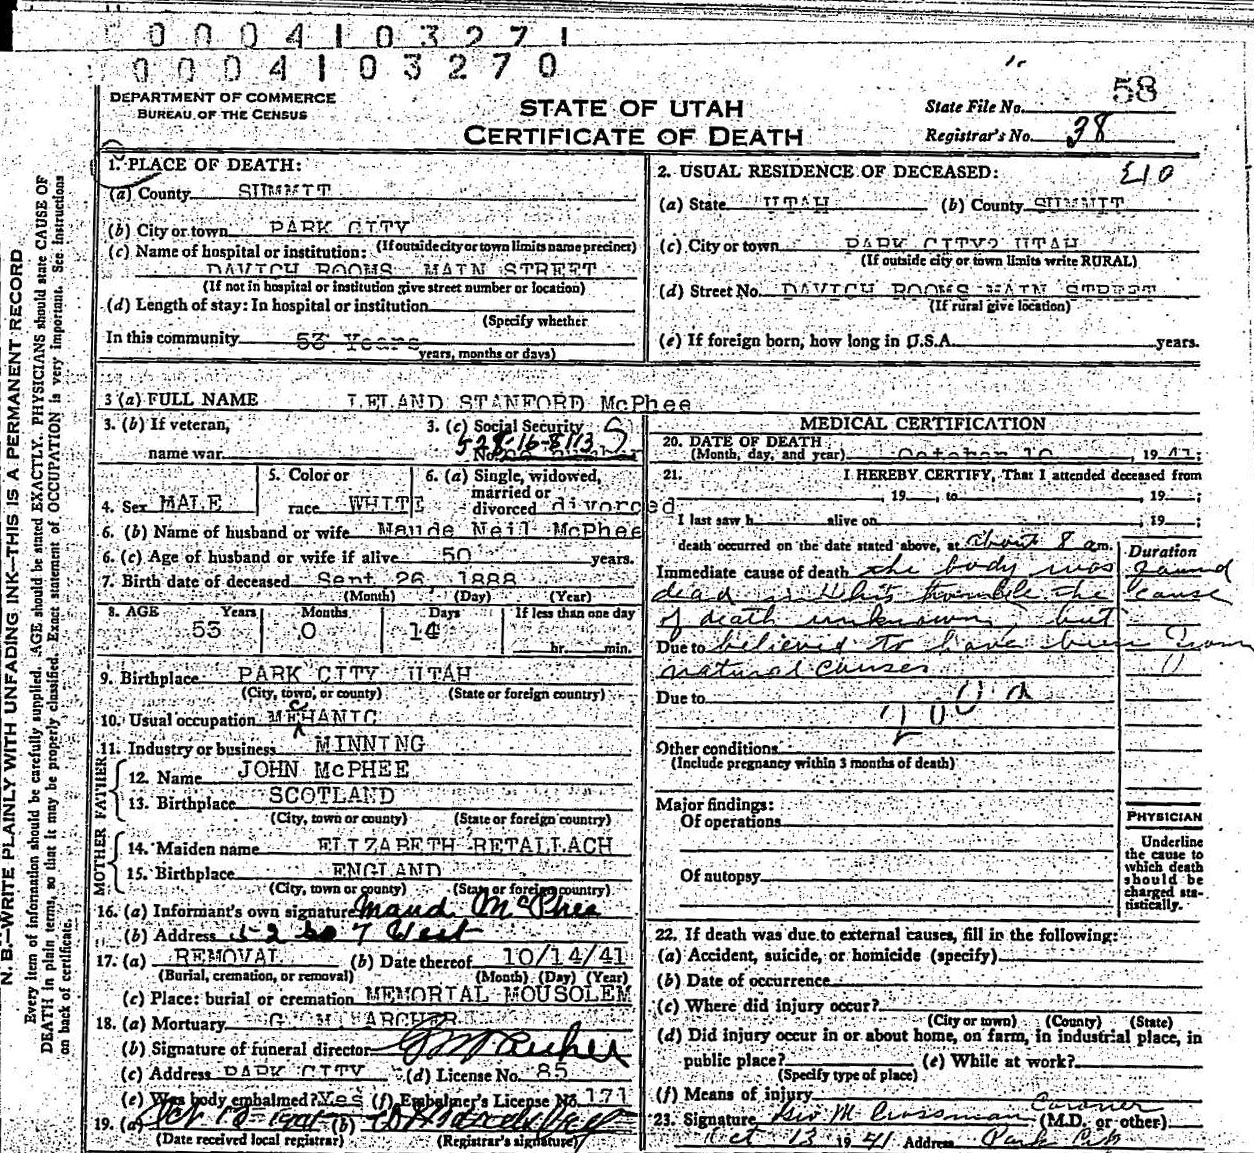 0 0 0 4 1 0 3 2 7 1
0 0 0 4 1 0 3 2 7 0
DEPARTMENT OF COMMERCE
BUREAU OF THE CENSUS
STATE OF UTAH
CERTIFICATE OF DEATH
State File No. 58
Registrar's No. 38
1. PLACE OF DEATH:
(a) County SUMMIT
(b) City or town PARK CITY
(If outside city or town limits name precinct)
(c) Name of hospital or institution:
DAVICH ROOMS MAIN STREET
(If not in hospital or institution give street number or location)
(d) Length of stay: In hospital or institution
(Specify whether
In this community 53 Years
years, months or days)
2. USUAL RESIDENCE OF DECEASED:
(a) State UTAH (b) County SUMMIT
(c) City or town PARK CITY? UTAH
(If outside city or town limits write RURAL)
(d) Street No. DAVICH ROOMS MAIN STREET
(If rural give location)
(e) If foreign born, how long in U.S.A. years.
3 (a) FULL NAME LELAND STANFORD McPhee
3. (b) If veteran,
name war
3. (c) Social Security
No. 528-16-8113
4. Sex MALE
5. Color or
race WHITE
6. (a) Single, widowed,
married or
divorced divorced
6. (b) Name of husband or wife Maude Neil McPhee
6. (c) Age of husband or wife if alive 50 years.
7. Birth date of deceased Sept 26 1888
(Month) (Day) (Year)
8. AGE Years Months Days If less than one day
53 0 14
hr. min.
9. Birthplace PARK CITY UTAH
(City, town, or county) (State or foreign country)
10. Usual occupation MEHANIC
c
11. Industry or business MINNING
FATHER
12. Name JOHN McPHEE
13. Birthplace SCOTLAND
(City, town or county) (State or foreign country)
MOTHER
14. Maiden name ELIZABETH RETALLACH
15. Birthplace ENGLAND
(City, town or county) (State or foreign country)
16. (a) Informant's own signature Maud McPhee
(b) Address 52 So 7 West
17. (a) REMOVAL (b) Date thereof 10/14/41
(Burial, cremation, or removal) (Month) (Day) (Year)
(c) Place: burial or cremation MEMORIAL MOUSOLEM
18. (a) Mortuary G M ARCHER
(b) Signature of funeral director G M Archer
(c) Address PARK CITY (d) License No. 85
(e) Was body embalmed? Yes (f) Embalmer's License No. 171
19. (a) Oct 13-1941 (b)
(Date received local registrar) (Registrar's signature)
MEDICAL CERTIFICATION
20. DATE OF DEATH
(Month, day, and year) October 10, 1941;
21. I HEREBY CERTIFY, That I attended deceased from
, 19 , to , 19 ;
I last saw h alive on , 19 ;
death occurred on the date stated above, at about 8 a m.
Duration
Immediate cause of death the body was found
dead the cause
of death unknown, but
Due to believed to have been from
natural causes
Due to
Other conditions
(Include pregnancy within 3 months of death)
Major findings:
Of operations
Of autopsy
PHYSICIAN
Underline
the cause to
which death
should be
charged sta-
tistically.
22. If death was due to external causes, fill in the following:
(a) Accident, suicide, or homicide (specify)
(b) Date of occurrence
(c) Where did injury occur?
(City or town) (County) (State)
(d) Did injury occur in or about home, on farm, in industrial place, in
public place? (e) While at work?
(Specify type of place)
(f) Means of injury
23. Signature Geo M. Crossman Coroner (M.D. or other)
Oct 13 1941 Address Park City
N. B.—WRITE PLAINLY WITH UNFADING INK—THIS IS A PERMANENT RECORD
Every item of information should be carefully supplied. AGE should be stated EXACTLY. PHYSICIANS should state CAUSE OF
DEATH in plain terms, so that it may be properly classified. Exact statement of OCCUPATION is very important. See Instructions
on back of certificate.